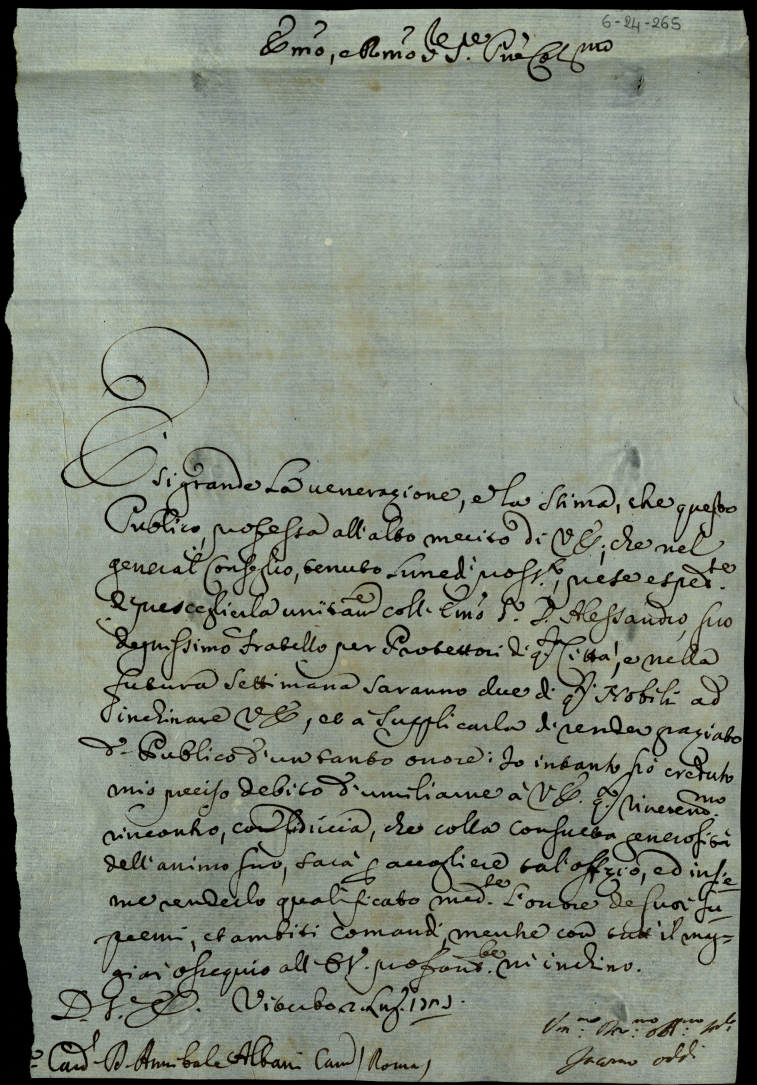 6-24-265
Emo, e Rmo Sigre Pne Colmo
È si grande La venerazione, e la stima, che questo
Publico, professa all'alto merito di V. E., che nel
general Conseglio, tenuto Lunedì poss.o, prese esped.te
di presceglierla unitam.e coll'Emo Sr. D. Alessandro, suo
degnissimo fratello per Protettori di q.ta Città, e nella
futura Settimana saranno due di q.ti Nobili ad
inchinare V. E., et à supplicarla di render graziato
d.o Publico d'un tanto onore: Io intanto hò creduto
mio preciso debito d'umiliarne à V. E. q.o riverenmo
rincontro, con fiducia, che colla consueta generosità
dell'animo suo, sarà p accogliere tal'offizio, ed insie
me renderlo qualificato med.te L'onore de suoi su
premi, et ambiti Comandi, mentre con tutt'il mag=
gior ossequio all'E. V. profondte m'inchino.
D. V. E. Viterbo 2 Lug.
Card. D. Annibale Albani Cam. (Roma)
Um.mo Dev.mo Obl.mo
Giacomo Oddi